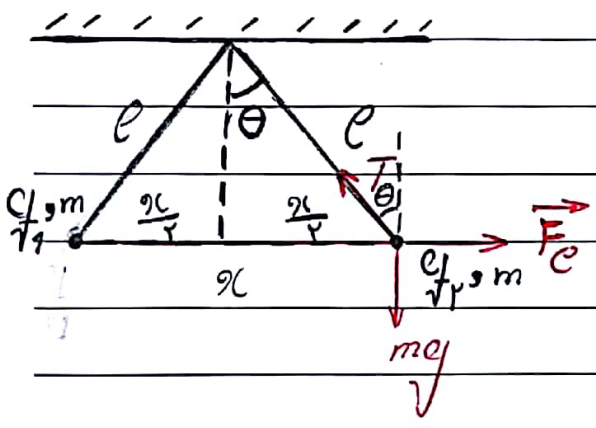 l θ l
T
θ
q₁, m x/۲ x/۲ F⃗e
x q۲, m
mg